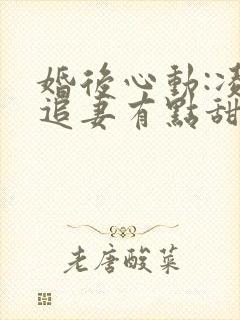 婚後心動:凌
追妻有點甜
老唐酸菜